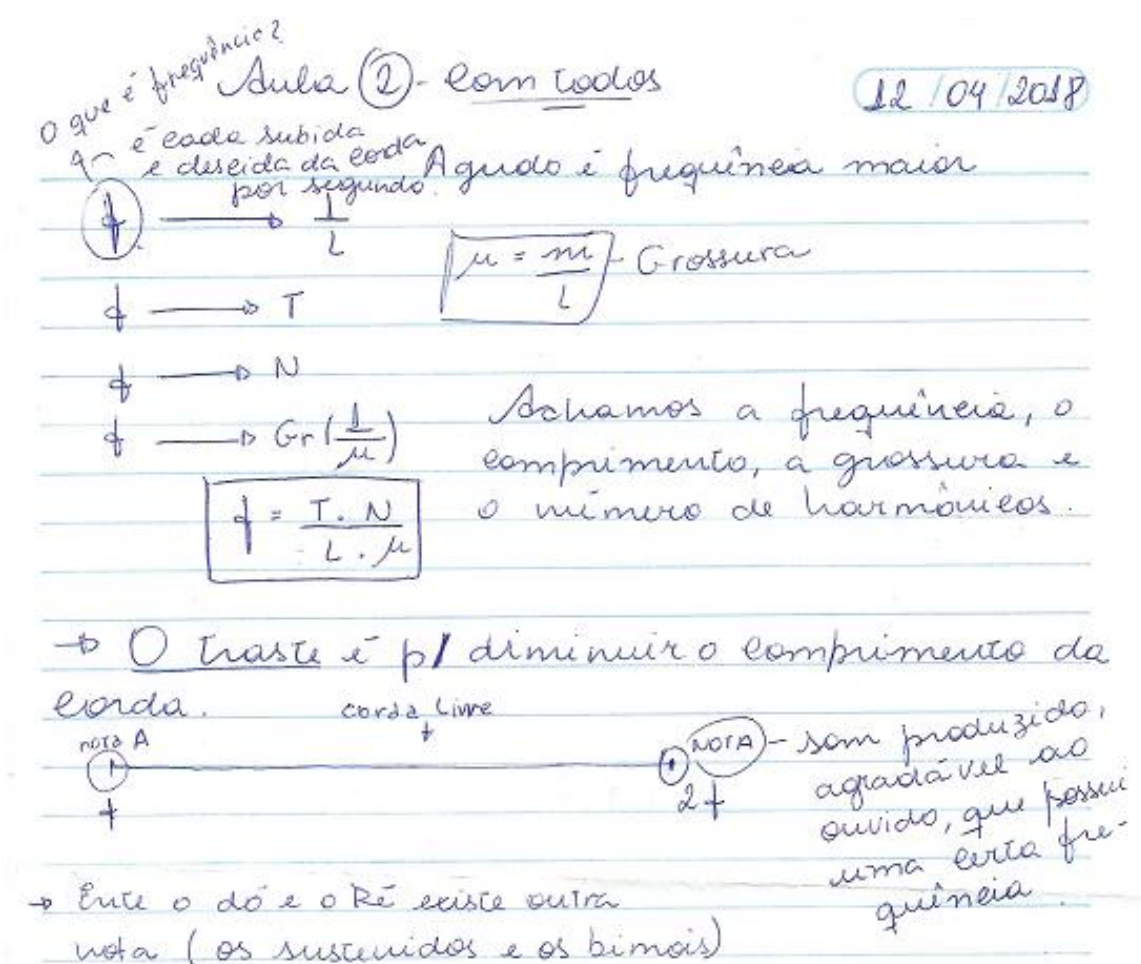 O que é frequência?
Aula 2 - Com todos
12/04/2018
é cada subida
e descida da corda
por segundo.
Agudo é frequência maior
f → 1/L
μ = m/L - Grossura
f → T
f → N
f → Gr (1/μ)
f = T. N / L . μ
Achamos a frequência, o
comprimento, a grossura e
o número de harmônicos.
→ O traste é p/ diminuir o comprimento da
corda.
corda livre
nota A
f
f
2f
NOTA - som produzido,
agradável ao
ouvido, que possui
uma certa fre-
quência.
→ Ente o dó e o Ré existe outra
nota (os sustenidos e os bimois)